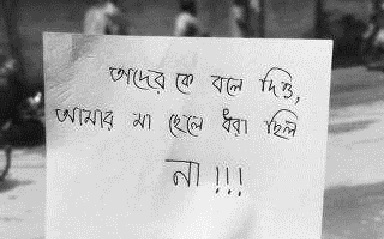 তাদের কে বলে দিও,
আমার মা ছেলে ধরা ছিল
না!!!